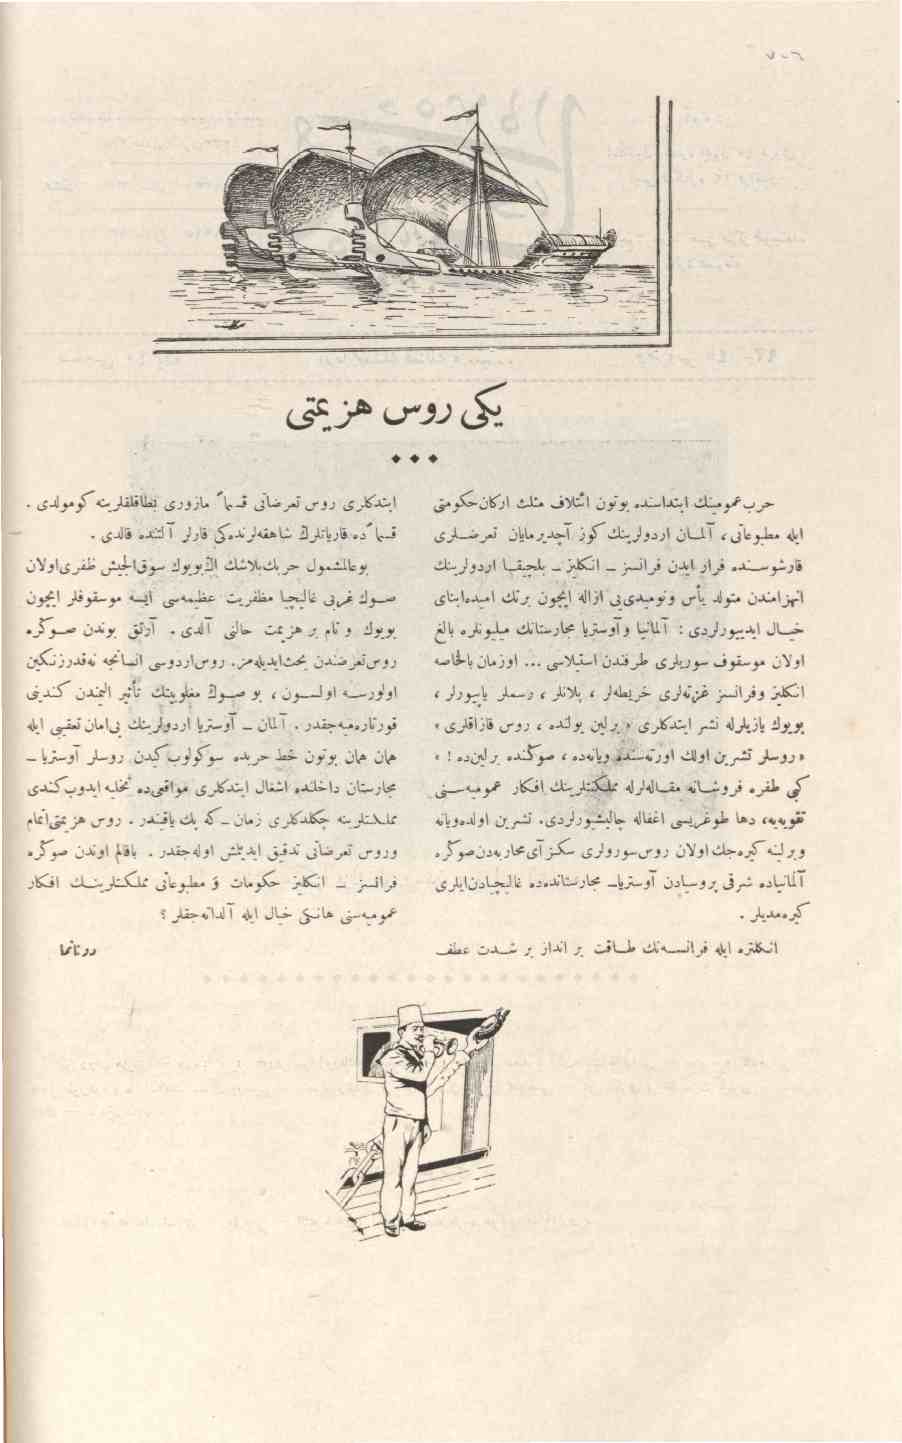 ٢٠٧
یکی روس هزیمتی
حرب عمومینك ابتداسنده بوتون ائتلاف مثلث ارکان حکومتی
ایله مطبوعاتی، آلمان اردولرینك کوز آچدیرمایان تعرضلری
قارشوسنده فرار ایدن فرانسز ـ انکلیز ـ بلچیقا اردولرینك
انهزامندن متولد یأس ونومیدی‌یی ازاله ایچون برتك امیده ابتنای
خیال ایدییورلردی : آلمانیا و آوستریا مجارستانك میلیونلره بالغ
اولان موسقوف سوریلری طرفندن استیلاسی ... اوزمان بالخاصه
انکلیز وفرانسز غزته‌لری خریطه‌لر ، پلانلر ، رسملر یاپیورلر ،
بویوك یازیلرله نشر ایتدکلری « برلین یولنده ، روس قازاقلری »
« روسلر تشرین اولك اورته‌سنده ویانه‌ده ، صوکنده برلین‌ده ! »
کبی طفره فروشانه مقاله‌لرله مملکتلرینك افکار عمومیه‌سنی
تقویه‌یه، دها طوغریسی اغفاله چالیشیورلردی. تشرین اولده ویانه
وبرلینه کیره‌جك اولان روس سورولری سکز آی محاربه‌دن صوکره
آلمانیاده شرقی پروسیادن آوستریا ـ مجارستانده‌ده غالیچیادن ایلری
کیره‌مدیلر .
انکلتره ایله فرانسه‌نك طاقت بر انداز بر شدت عطف
ایتدکلری روس تعرضاتی قسماً مازوری بطاقلقلرینه کومولدی .
قسماً ده قارپاتلرك شاهقه‌لرنده‌کی قارلر آلتنده قالدی .
بو عالمشمول حربك بلاشك اك بویوك سوق الجیش ظفری اولان
صوك غربی غالیچیا مظفریت عظیمه‌سی ایسه موسقوفلر ایچون
بویوك و تام بر هزیمت حالنی آلدی . آرتق بوندن صوکره
روس تعرضندن بحث ایدیله‌مز. روس اردوسی انسانجه نه‌قدر زنکین
اولورسه اولسون ، بو صوك مغلوبیتك تأثیر الیمندن کندینی
قورتاره‌میه‌جقدر . آلمان ـ آوستریا اردولرینك بی‌امان تعقیبی ایله
همان همان بوتون خط حربده سوکولوب کیدن روسلر آوستریا ـ
مجارستان داخلنده اشغال ایتدکلری مواقعی‌ده تخلیه ایدوب کندی
مملکتلرینه چکلدکلری زمان ـ که پك یاقیندر . روس هزیمتی اتمام
وروس تعرضاتی تدقیق ایدیلمش اوله‌جقدر . باقالم اوندن صوکره
فرانسز ـ انکلیز حکومات و مطبوعاتی مملکتلرینك افکار
عمومیه‌سنی هانکی خیال ایله آلداته‌جقلر ؟